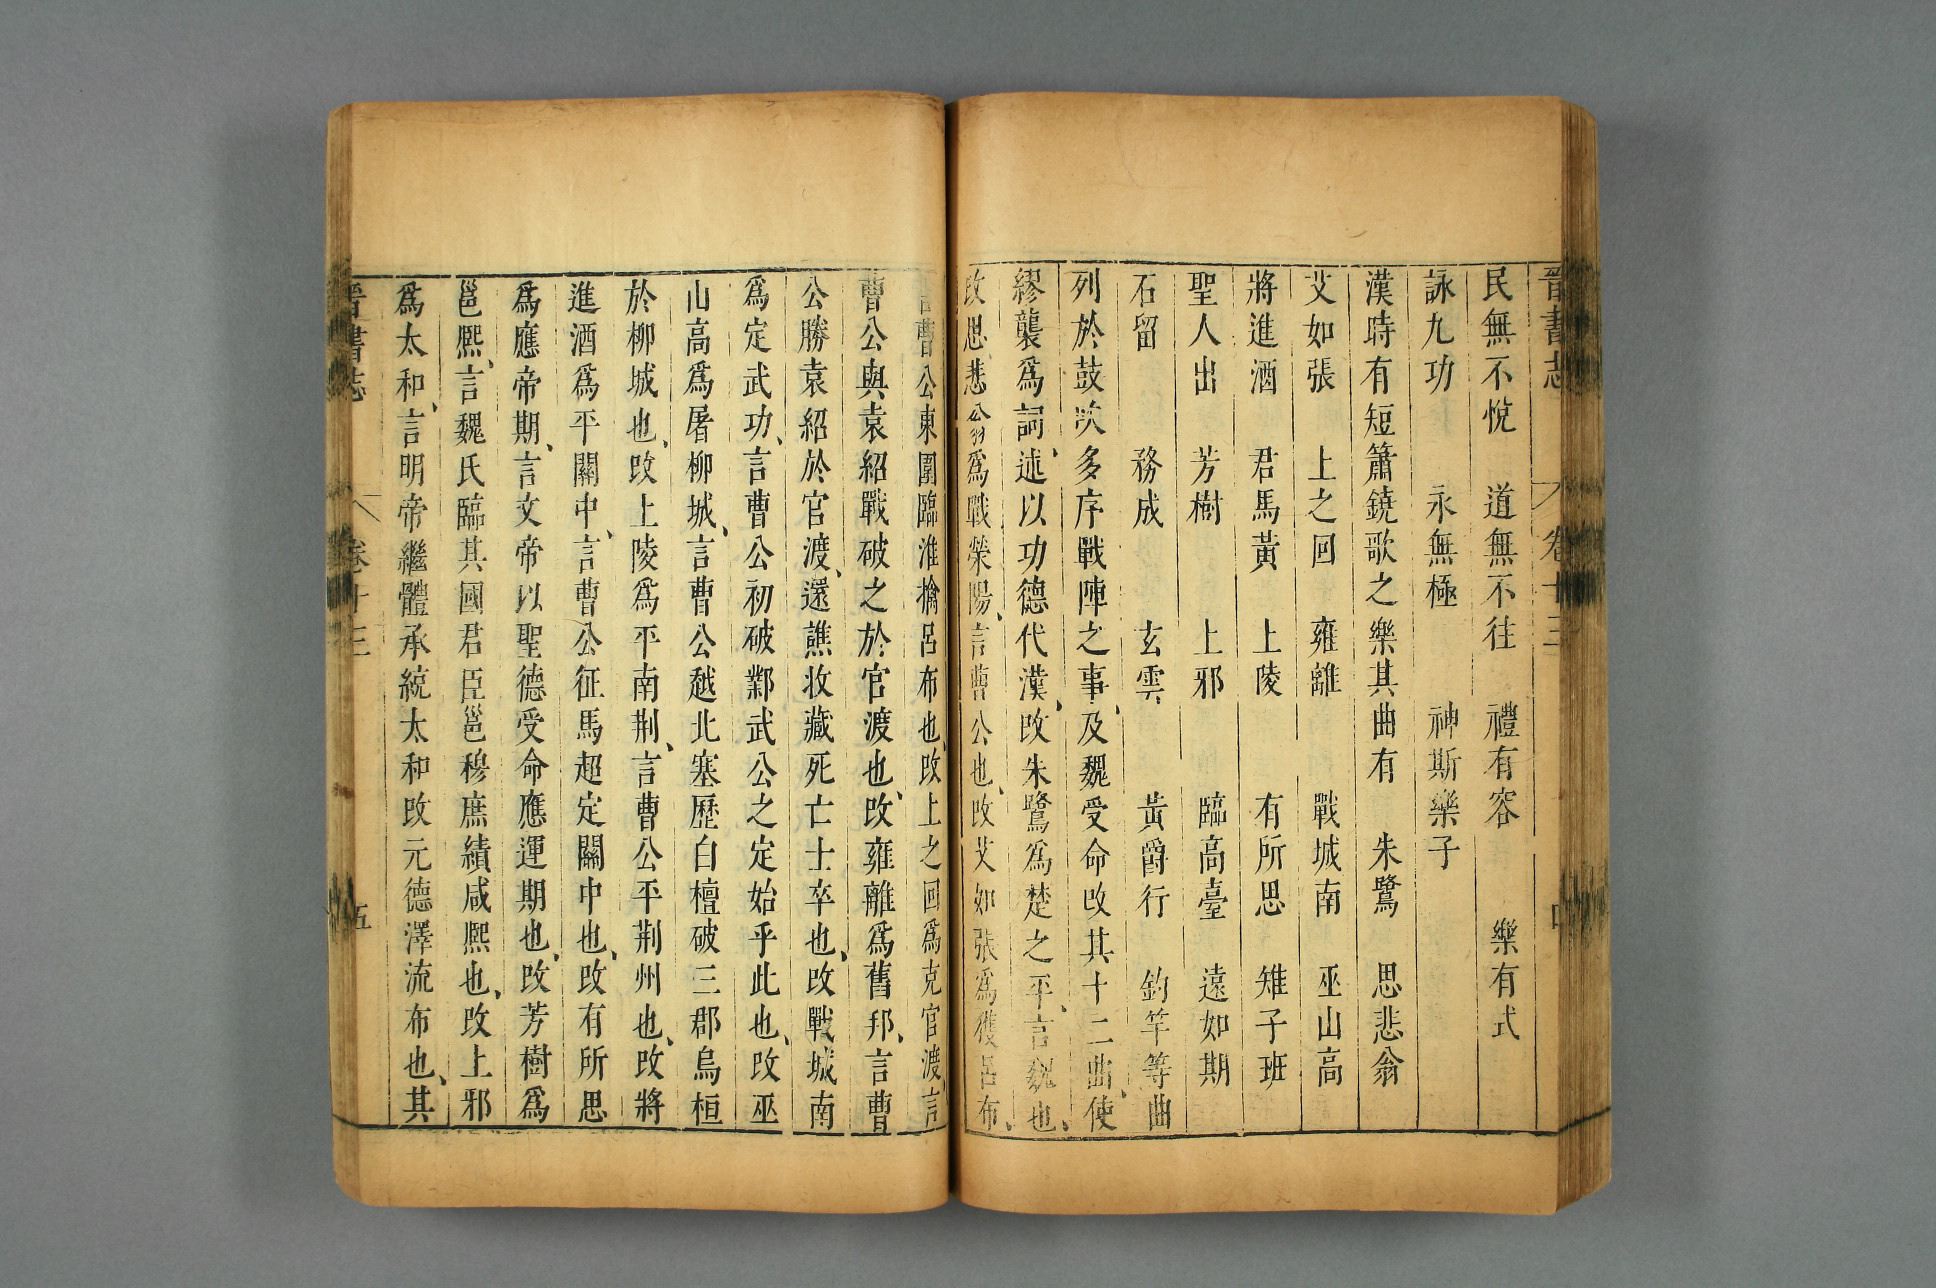 晉書志 卷十三 四
民無不悅 道無不往 禮有容 樂有式
詠九功 永無極 神斯樂子
漢時有短簫鐃歌之樂其曲有 朱鷺 思悲翁
艾如張 上之回 雍離 戰城南 巫山高
將進酒 君馬黃 上陵 有所思 雉子班
聖人出 芳樹 上邪 臨高臺 遠如期
石留 務成 玄雲 黃爵行 釣竿等曲
列於鼓吹多序戰陣之事、及魏受命改其十二曲、使
繆襲爲詞、述以功德代漢、改朱鷺爲楚之平、言魏也、
改思悲公翁爲戰滎陽、言曹公也、改艾如張爲獲呂布、
言曹公東圍臨淮擒呂布也、改上之回爲克官渡、言
曹公與袁紹戰破之於官渡也、改雍離爲舊邦、言曹
公勝袁紹於官渡、還譙收藏死亡士卒也、改戰城南
爲定武功、言曹公初破鄴武公之定始乎此也、改巫
山高爲屠柳城、言曹公越北塞歷白檀破三郡烏桓
於柳城也、改上陵爲平南荆、言曹公平荆州也、改將
進酒爲平關中、言曹公征馬超定關中也、改有所思
爲應帝期、言文帝以聖德受命應運期也、改芳樹爲
邕熙、言魏氏臨其國君臣邕穆庶績咸熙也、改上邪
爲太和、言明帝繼體承統太和改元德澤流布也、其
晉書志 卷十三 五